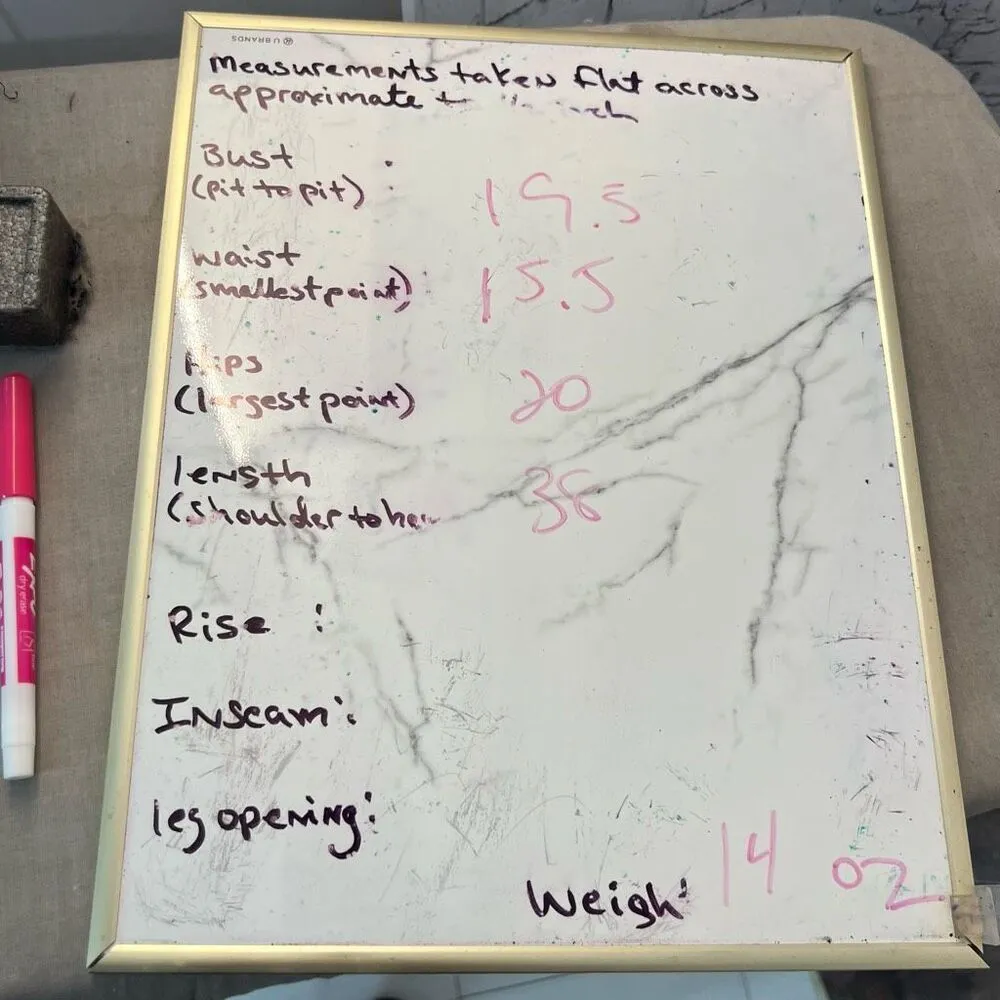 U BRANDS
Measurements taken flat across
approximate
Bust
(pit to pit) : 19.5
waist
smallest point) : 15.5
Hips
(largest point) 20
length
(shoulder to 36
Rise :
Inseam :
leg opening :
Weigh : 14 oz
dry erase